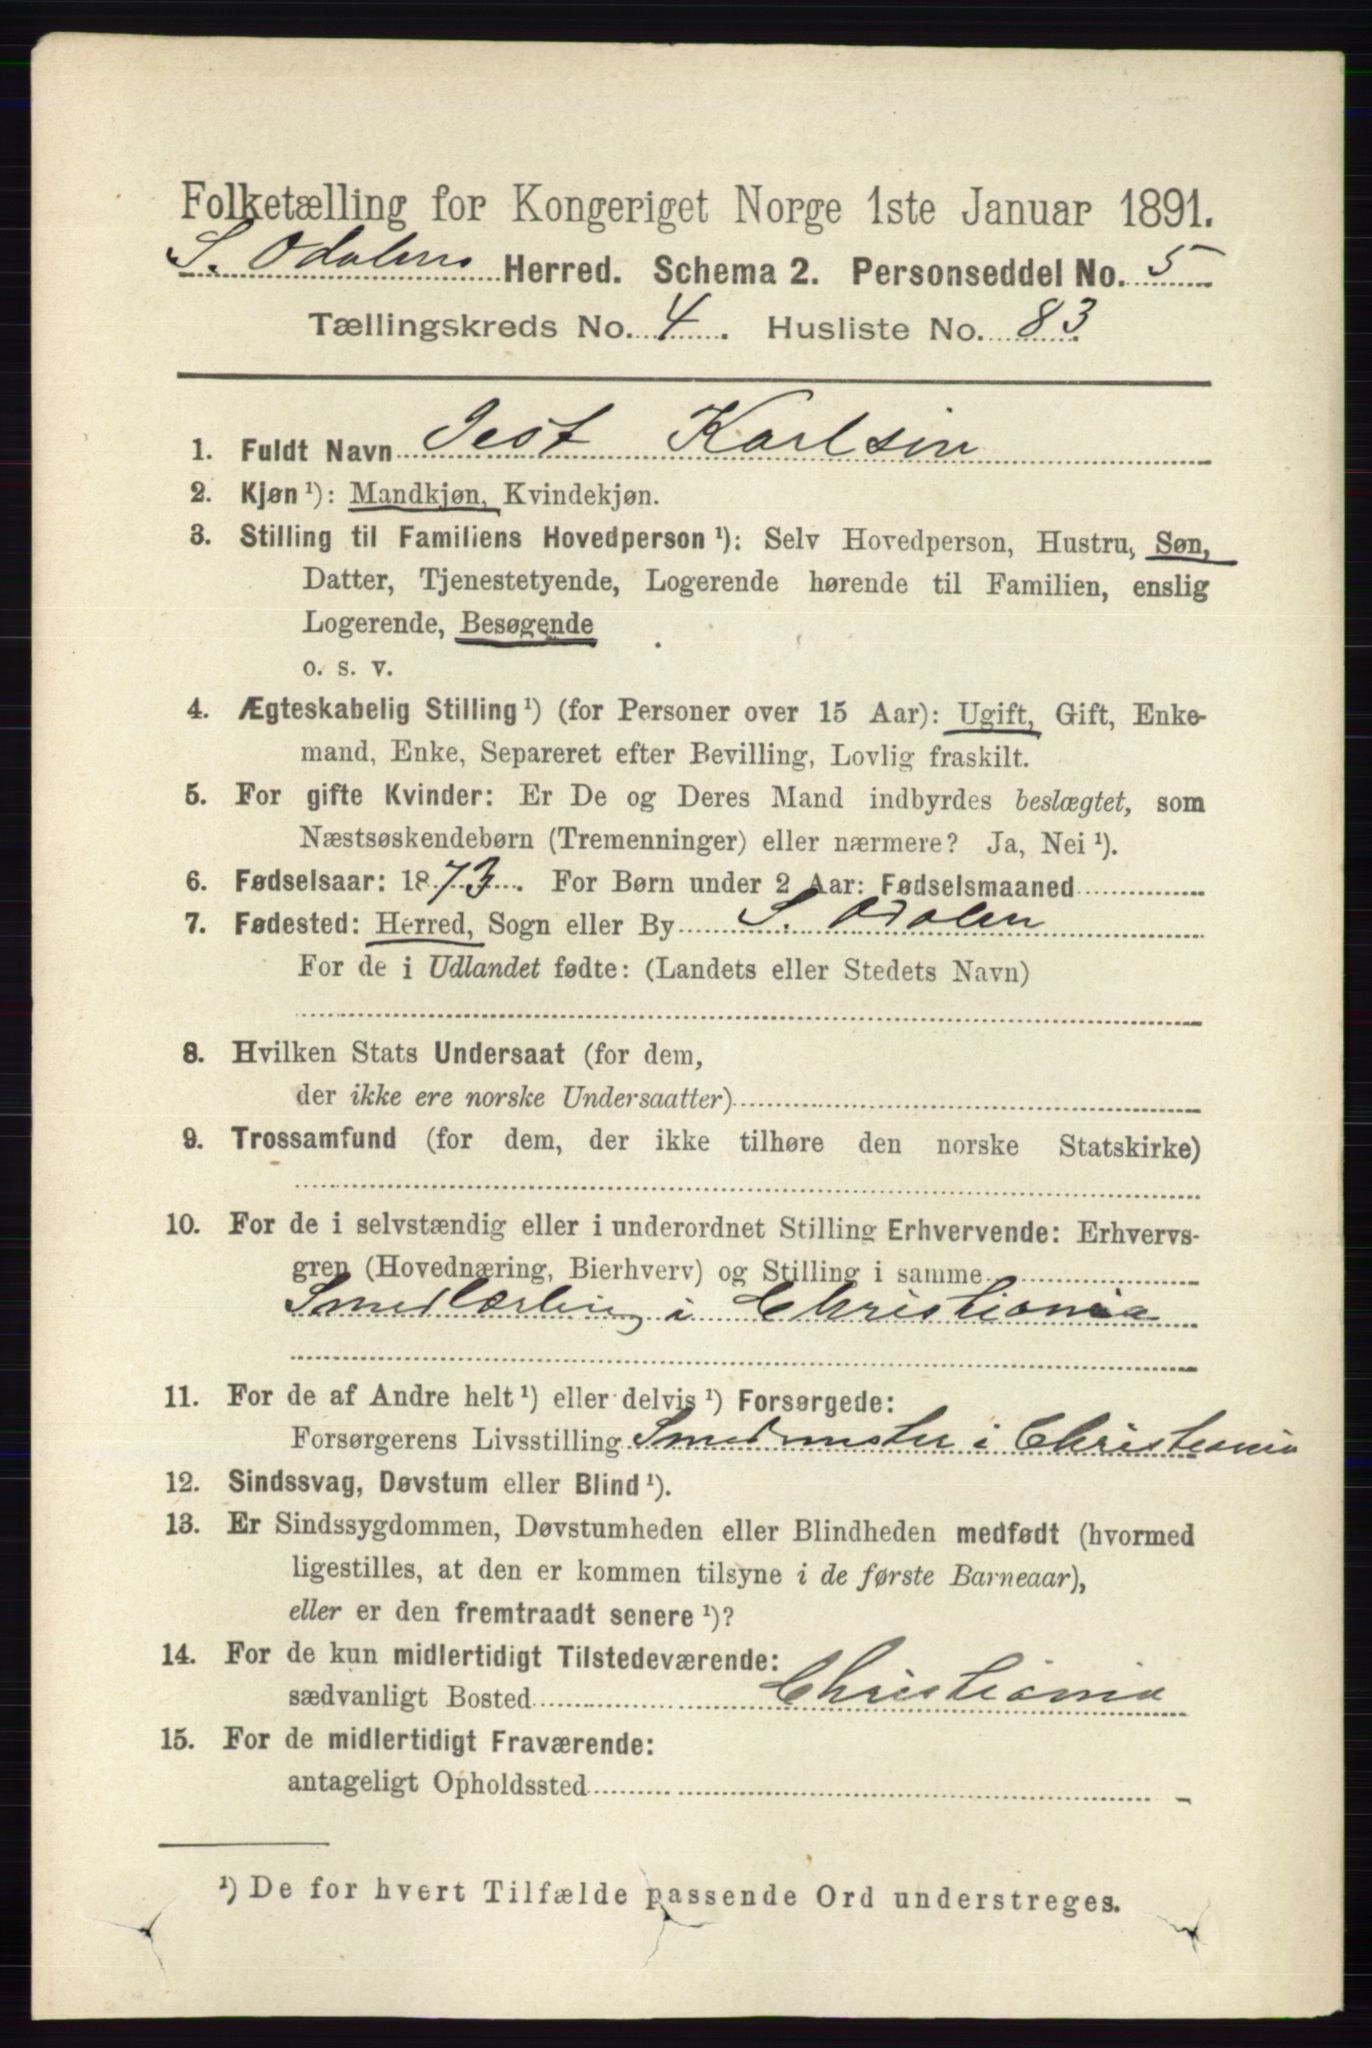 Folketælling for Kongeriget Norge 1ste Januar 1891.
S. Odalens Herred. Schema 2. Personseddel No. 5
Tællingskreds No. 4. Husliste No. 83
1. Fuldt Navn Karlsen
2. Kjøn ¹): Mandkjøn, Kvindekjøn.
3. Stilling til Familiens Hovedperson ¹): Selv Hovedperson, Hustru, Søn,
Datter, Tjenestetyende, Logerende hørende til Familien, enslig
Logerende, Besøgende
o. s. v.
4. Ægteskabelig Stilling ¹) (for Personer over 15 Aar): Ugift, Gift, Enke-
mand, Enke, Separeret efter Bevilling, Lovlig fraskilt.
5. For gifte Kvinder: Er De og Deres Mand indbyrdes beslægtet, som
Næstsøskendebørn (Tremenninger) eller nærmere? Ja, Nei ¹).
6. Fødselsaar: 1873. For Børn under 2 Aar: Fødselsmaaned
7. Fødested: Herred, Sogn eller By S. Odalen
For de i Udlandet fødte: (Landets eller Stedets Navn)
8. Hvilken Stats Undersaat (for dem,
der ikke ere norske Undersaatter)
9. Trossamfund (for dem, der ikke tilhøre den norske Statskirke)
10. For de i selvstændig eller i underordnet Stilling Erhvervende: Erhvervs-
gren (Hovednæring, Bierhverv) og Stilling i samme
Smedlærling i Christiania
11. For de af Andre helt ¹) eller delvis ¹) Forsørgede:
Forsørgerens Livsstilling Smedmester i Christiania
12. Sindssvag, Døvstum eller Blind ¹).
13. Er Sindssygdommen, Døvstumheden eller Blindheden medfødt (hvormed
ligestilles, at den er kommen tilsyne i de første Barneaar),
eller er den fremtraadt senere ¹)?
14. For de kun midlertidigt Tilstedeværende:
sædvanligt Bosted Christiania
15. For de midlertidigt Fraværende:
antageligt Opholdssted
¹) De for hvert Tilfælde passende Ord understreges.